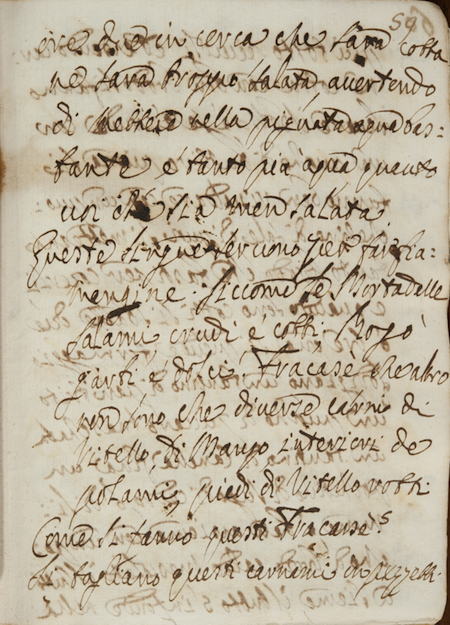 59
ore due in cerca che sarà cotta
ne sarà troppo salata avertendo
di mettere nella pignata aqua bas=
tante e tanto più aqua quanto
che sia men salata
Queste lingue servono per far
siccome le Mortadelle
salami crudi e cotti, Rogò
garbi e dolci, Fracasè che altro
non sono che diverse carni di
Vitello, di Manzo interiori de
polami, piedi di Vitello rotti
Come si fanno questi Fracasse
Si tagliano questi carnami in pezzetti